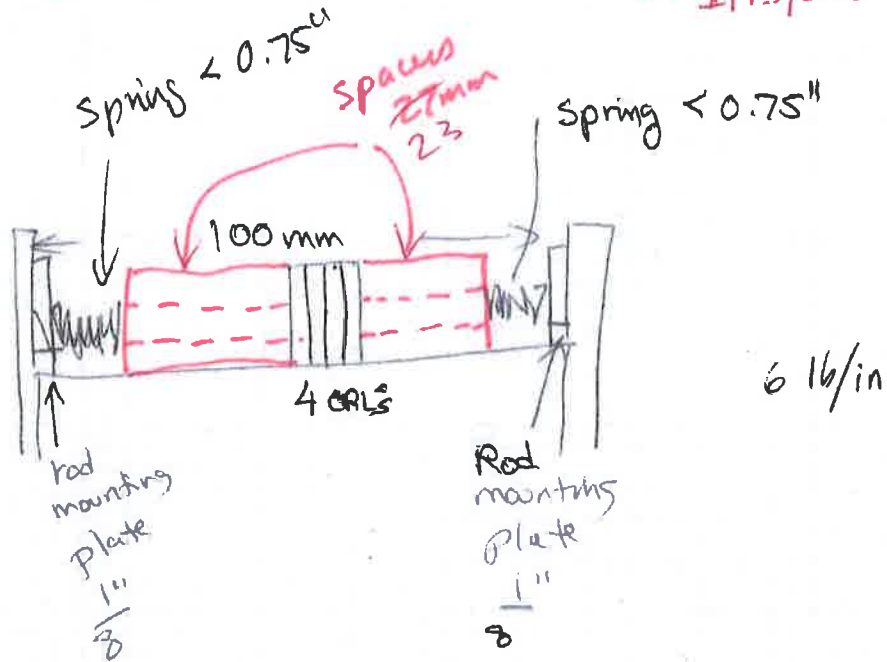 spring < 0.75"
spacers
27mm
23
spring < 0.75"
100 mm
4 CRLs
6 lb/in
rod
mounting
plate
1"
8
Rod
mounting
plate
1"
8